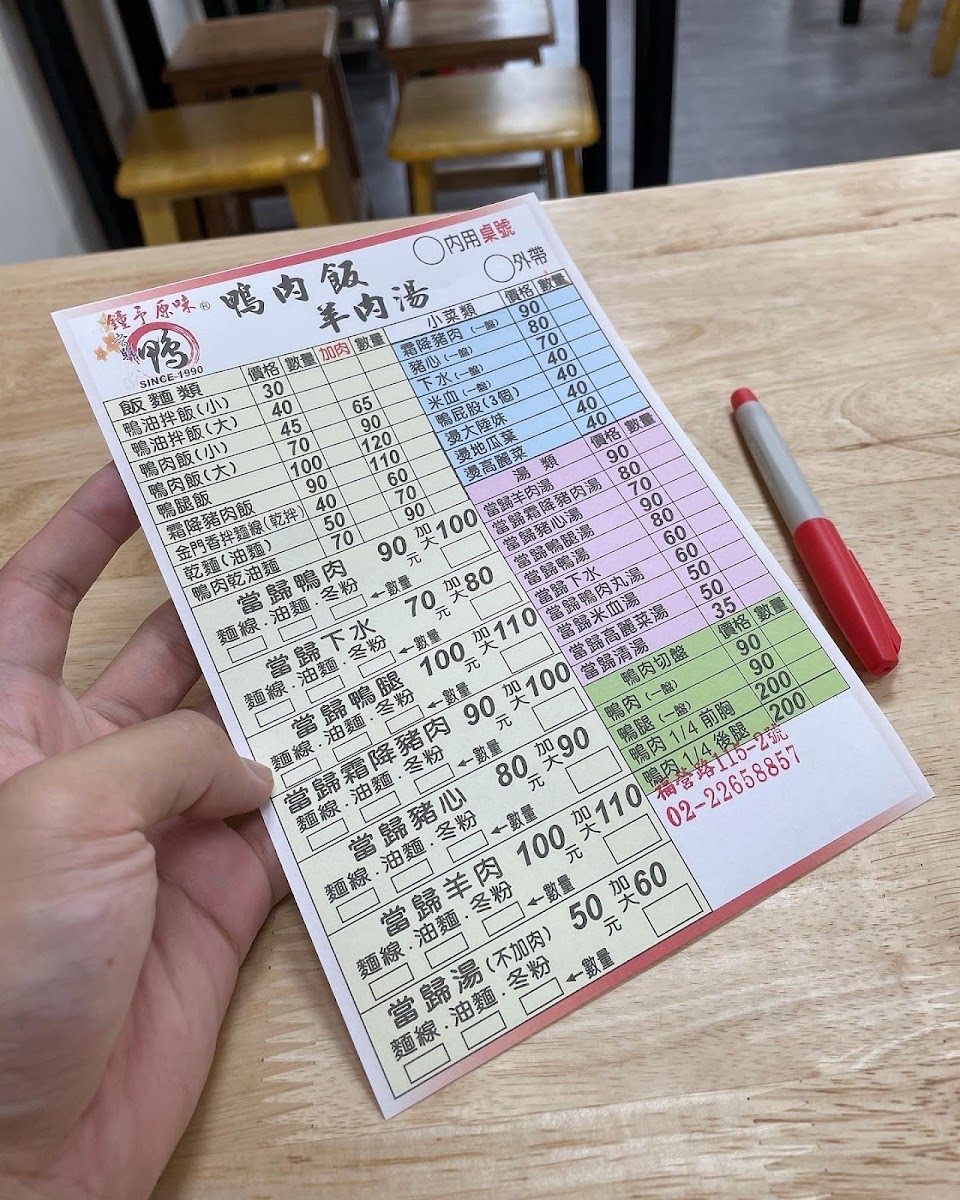 鐘予原味®
鴨
SINCE 1990
鴨肉飯
羊肉湯
內用 桌號
外帶
飯麵類 價格 數量 加肉 數量
鴨油拌飯(小) 30
鴨油拌飯(大) 40
鴨肉飯(小) 45 65
鴨肉飯(大) 70 90
鴨腿飯 100 120
霜降豬肉飯 90 110
金門香拌麵線(乾拌) 40 60
乾麵(油麵) 50 70
鴨肉乾油麵 70 90
當歸鴨肉 90元 加大100
麵線.油麵.冬粉 ←數量
當歸下水 70元 加大80
麵線.油麵.冬粉 ←數量
當歸鴨腿 100元 加大110
麵線.油麵.冬粉 ←數量
當歸霜降豬肉 90元 加大100
麵線.油麵.冬粉 ←數量
當歸豬心 80元 加大90
麵線.油麵.冬粉 ←數量
當歸羊肉 100元 加大110
麵線.油麵.冬粉 ←數量
當歸湯(不加肉) 50元 加大60
麵線.油麵.冬粉 ←數量
小菜類 價格 數量
霜降豬肉(一盤) 90
豬心(一盤) 80
下水(一盤) 70
米血(一盤) 40
鴨屁股(3個) 40
燙大陸妹 40
燙地瓜葉 40
燙高麗菜 40
湯類 價格 數量
當歸羊肉湯 90
當歸霜降豬肉湯 80
當歸豬心湯 70
當歸鴨腿湯 90
當歸鴨湯 80
當歸下水 60
當歸鴨肉丸湯 60
當歸米血湯 50
當歸高麗菜湯 50
當歸清湯 35
鴨肉切盤 價格 數量
鴨肉(一盤) 90
鴨腿(一盤) 90
鴨肉 1/4 前胸 200
鴨肉 1/4 後腿 200
福營路115-2號
02-22658857